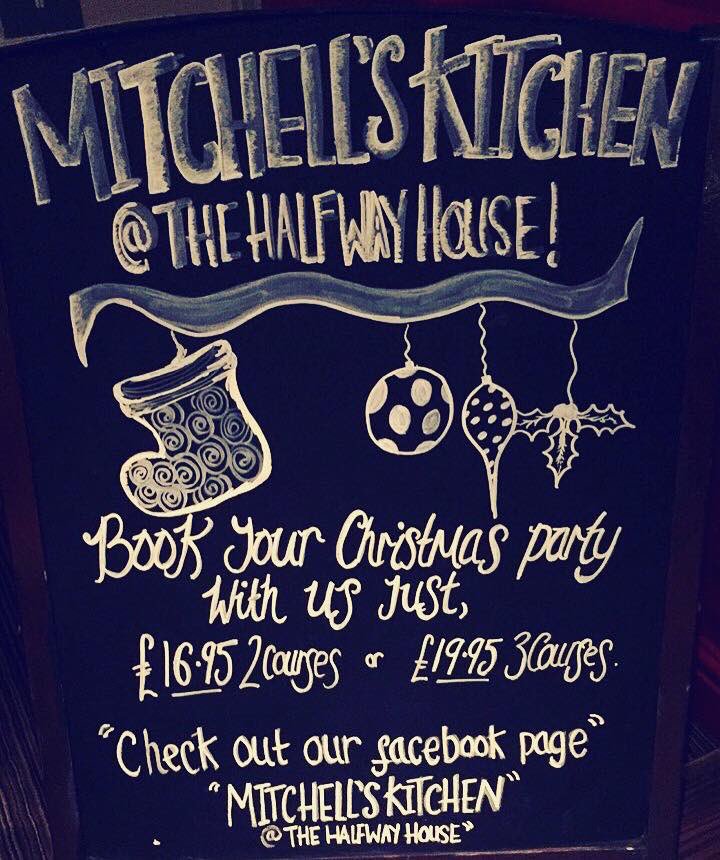 MITCHELL'S KITCHEN
@ THE HALFWAY HOUSE!
Book Your Christmas party
With us Just,
£16.95 2 Courses or £19.95 3 Courses.
"Check out our facebook page"
"MITCHELL'S KITCHEN"
@ THE HALFWAY HOUSE"